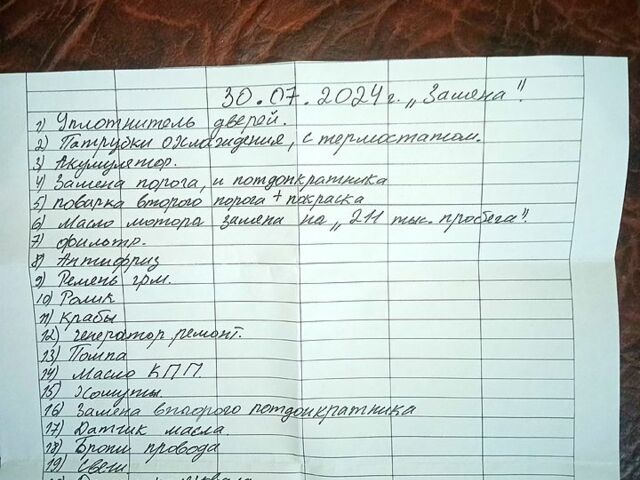 30.07.2024г. "Замена".
1) Уплотнитель дверей.
2) Патрубки охлаждения, с термостатом.
3) Акумулятор.
4) Замена порога, и потдонкратника
5) поварка второго порога + покраска
6) Масло мотора замена на "211 тыс. пробега".
7) фильтр.
8) Антифриз
9) Ремень грм.
10) Ролик
11) Крабы
12) генератор, ремонт.
13) Помпа
14) Масло КПП.
15) Хомуты.
16) Замена второго потдонкратника
17) Датчик масла.
18) Брони провода
19) Свечи